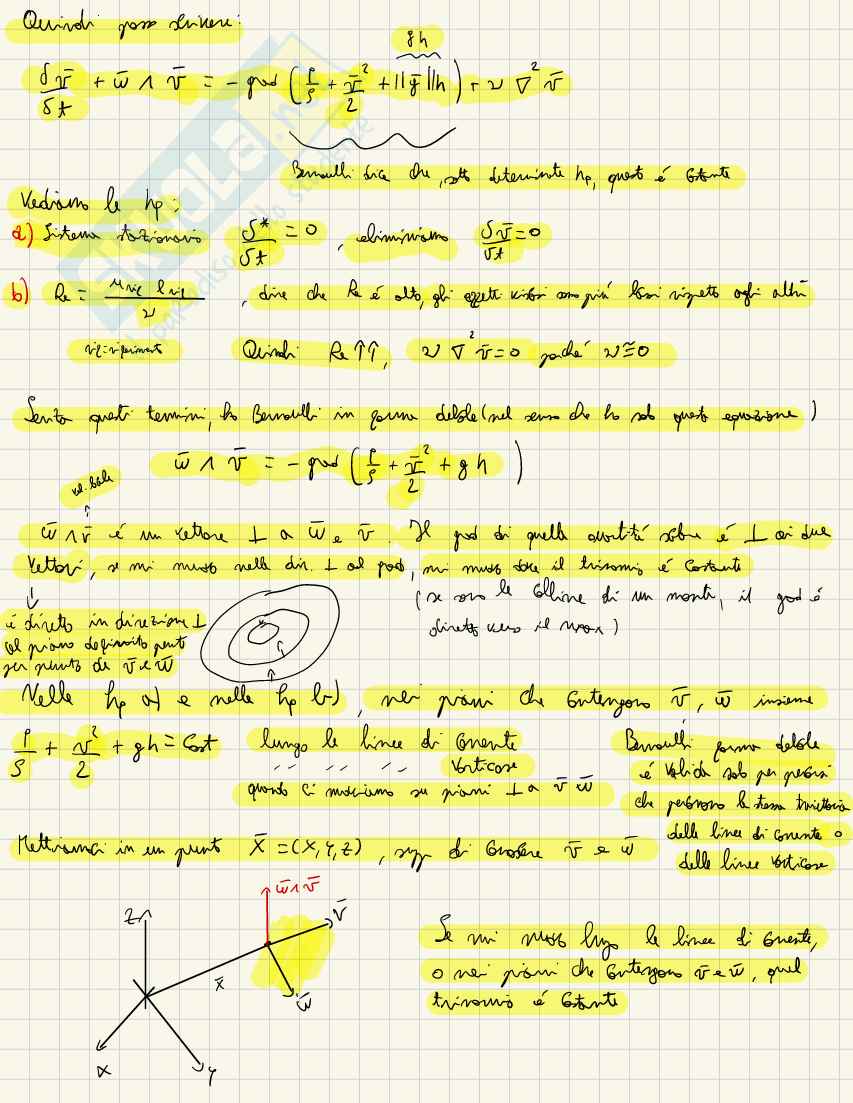 Quindi posso scrivere:
gh
δv̄/δt + ω̄ ∧ v̄ = - grad (p/ρ + v̄²/2 + ||ḡ||h) + ν ∇² v̄
Bernoulli dice che, sotto determinate hp, questo è costante
Vediamo le hp:
a) Sistema stazionario δ*/δt = 0, eliminiamo δv̄/δt = 0
b) Re = u rif l rif / ν, dire che Re è alto, gli effetti viscosi sono più bassi rispetto agli altri
rif = riferimento Quindi Re ↑↑, ν ∇² v̄ = 0 poiché ν ≅ 0
Senza questi termini, ho Bernoulli in forma debole (nel senso che ho solo questa equazione)
ω̄ ∧ v̄ = - grad (p/ρ + v̄²/2 + gh)
ω̄ ∧ v̄ è un vettore ⊥ a ω̄ e v̄. Il grad di quella quantità scalare è ⊥ ai due
vettori, se mi muovo nella dir. ⊥ al grad, mi muovo dove il trinomio è costante
(se sono le colline di un monte, il grad è
diretto verso il max)
è diretto in direzione ⊥
al piano definito punto
per punto da v̄ e ω̄
Nelle hp a) e nelle hp b), nei piani che contengono v̄, ω̄ insieme
p/ρ + v̄²/2 + gh = cost lungo le linee di corrente
vorticose
quando ci muoviamo su piani ⊥ a v̄ ω̄
Bernoulli forma debole
è valida solo per
che percorrono la stessa traiettoria
delle linee di corrente o
delle linee vorticose
Mettiamoci in un punto X̄ = (x, y, z), supp di conoscere v̄ e ω̄
z
ω̄ ∧ v̄
v̄
x̄
ω̄
x
y
Se mi muovo lungo le linee di corrente,
o nei piani che contengono v̄ e ω̄, quel
trinomio è costante